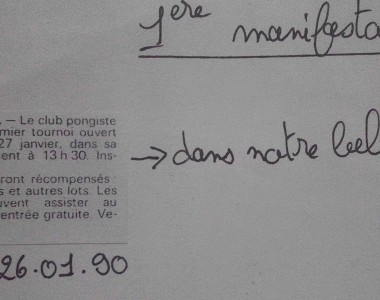 1ère manifesta
. — Le club pongiste
mier tournoi ouvert
27 janvier, dans sa
ent à 13 h 30. Ins-
ront récompensés :
s et autres lots. Les
uvent assister au
entrée gratuite. Ve-
→ dans notre bel
26.01.90